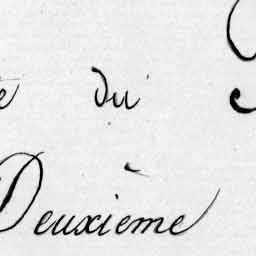 du
Deuxième